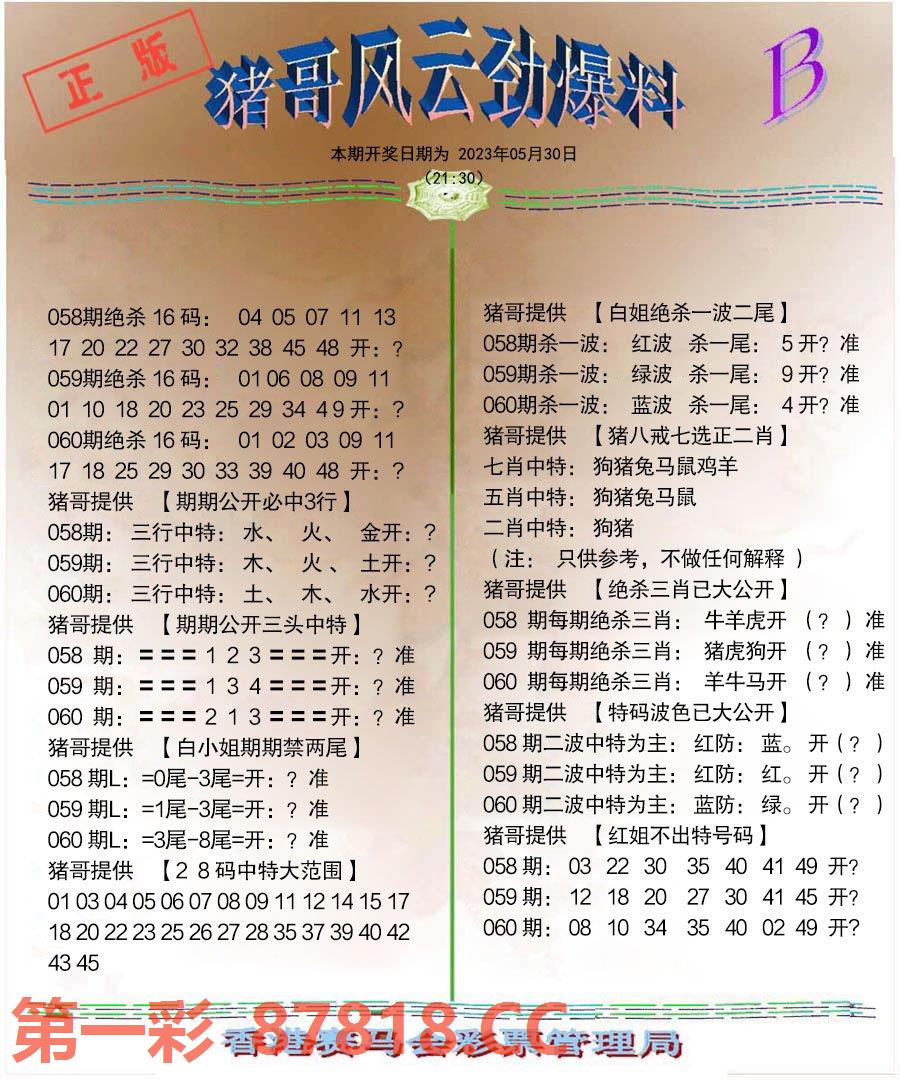 正版
猪哥风云劲爆料
B
本期开奖日期为 2023年05月30日
(21:30)
058期绝杀 16 码： 04 05 07 11 13
17 20 22 27 30 32 38 45 48 开：?
059期绝杀 16 码： 01 06 08 09 11
01 10 18 20 23 25 29 34 4 9 开：?
060期绝杀 16 码： 01 02 03 09 11
17 18 25 29 30 33 39 40 48 开：?
猪哥提供 【期期公开必中3行】
058期： 三行中特： 水、 火、 金开：?
059期： 三行中特： 木、 火、 土开：?
060期： 三行中特： 土、 木、 水开：?
猪哥提供 【期期公开三头中特】
058 期：＝＝＝１２３＝＝＝开：? 准
059 期：＝＝＝１３４＝＝＝开：? 准
060 期：＝＝＝２１３＝＝＝开：? 准
猪哥提供 【白小姐期期禁两尾】
058 期L：=0尾-3尾=开：? 准
059 期L：=1尾-3尾=开：? 准
060 期L：=3尾-8尾=开：? 准
猪哥提供 【２８码中特大范围】
01 03 04 05 06 07 08 09 11 12 14 15 17
18 20 22 23 25 26 27 28 35 37 39 40 42
43 45
猪哥提供 【白姐绝杀一波二尾】
058期杀一波： 红波 杀一尾： 5 开? 准
059期杀一波： 绿波 杀一尾： 9 开? 准
060期杀一波： 蓝波 杀一尾： 4 开? 准
猪哥提供 【猪八戒七选正二肖】
七肖中特： 狗猪兔马鼠鸡羊
五肖中特： 狗猪兔马鼠
二肖中特： 狗猪
（注： 只供参考，不做任何解释 ）
猪哥提供 【绝杀三肖已大公开】
058 期每期绝杀三肖： 牛羊虎开 （? ）准
059 期每期绝杀三肖： 猪虎狗开 （? ）准
060 期每期绝杀三肖： 羊牛马开 （? ）准
猪哥提供 【特码波色已大公开】
058 期二波中特为主： 红防： 蓝。开（? ）
059 期二波中特为主： 红防： 红。开（? ）
060 期二波中特为主： 蓝防： 绿。开（? ）
猪哥提供 【红姐不出特号码】
058 期： 03 22 30 35 40 41 49 开?
059 期： 12 18 20 27 30 41 45 开?
060 期： 08 10 34 35 40 02 49 开?
第一彩 87818.CC
香港赛马会彩票管理局